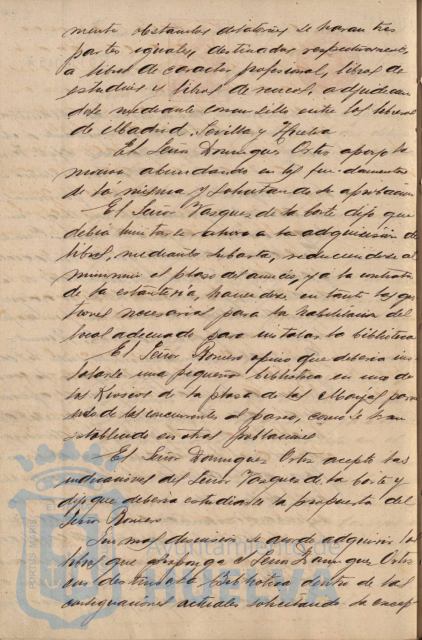 mente obstaculos dilatorios se haran tres
partes iguales, destinadas respectivamente
a libros de caracter profesional, libros de
estudios y libros de recreo, adjudican
dose mediante concursillo entre los libreros
de Madrid, Sevilla y Huelva.
El Señor Dominguez Ortiz apoyó la
mocion abundando en los fundamentos
de la misma y solicitando su aprobacion
El Señor Vazquez de la Corte dijo que
debia limitarse ahora a la adquisicion de
libros, mediante subasta, reduciendose al
minimum el plazo del anuncio, y a la contrata
de la estanteria, haciendose en tanto las ges
tiones necesarias para la habilitacion del
local adecuado para instalar la biblioteca
El Señor Romero opino que deberia ins
talarse una pequeña biblioteca en uno de
los Kioscos de la plaza de las Monjas para
uso de los concurrentes al paseo, como se han
establecido en otras poblaciones
El Señor Dominguez Ortiz acepto las
indicaciones del Señor Vazquez de la Corte y
dijo que deberia estudiarse la propuesta del
Señor Romero
Sin mas discusion se acordo adquirir los
libros que proponga el Señor Dominguez Ortiz
con destino a la Biblioteca dentro de las
consignaciones actuales solicitando la excep
Ayuntamiento de
HUELVA